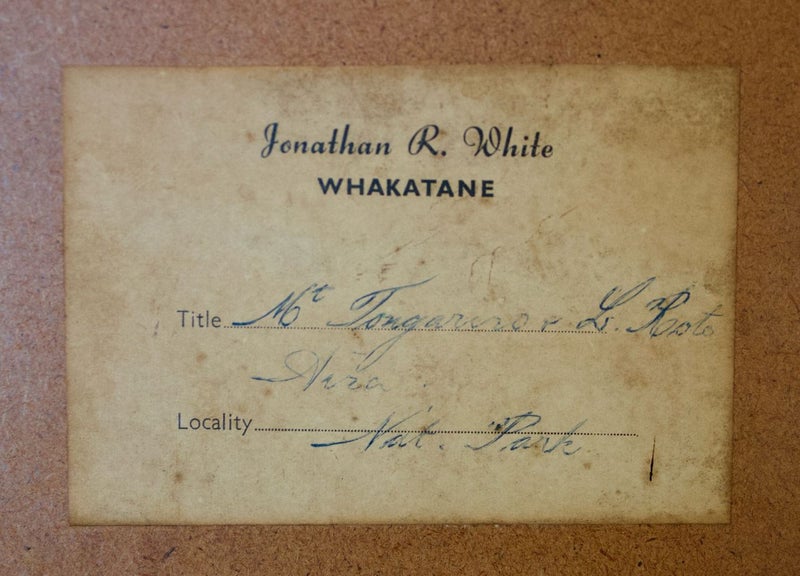 Jonathan R. White
WHAKATANE
Title Mt Tongariro & L. Roto
Aira
Locality Nat. Park